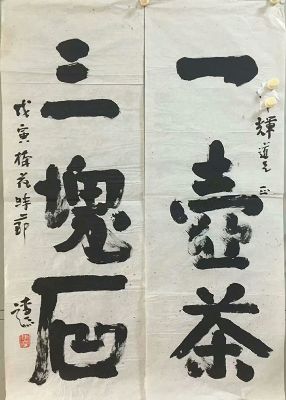 輝道兄正
一壺茶
三塊石
戊寅花時節